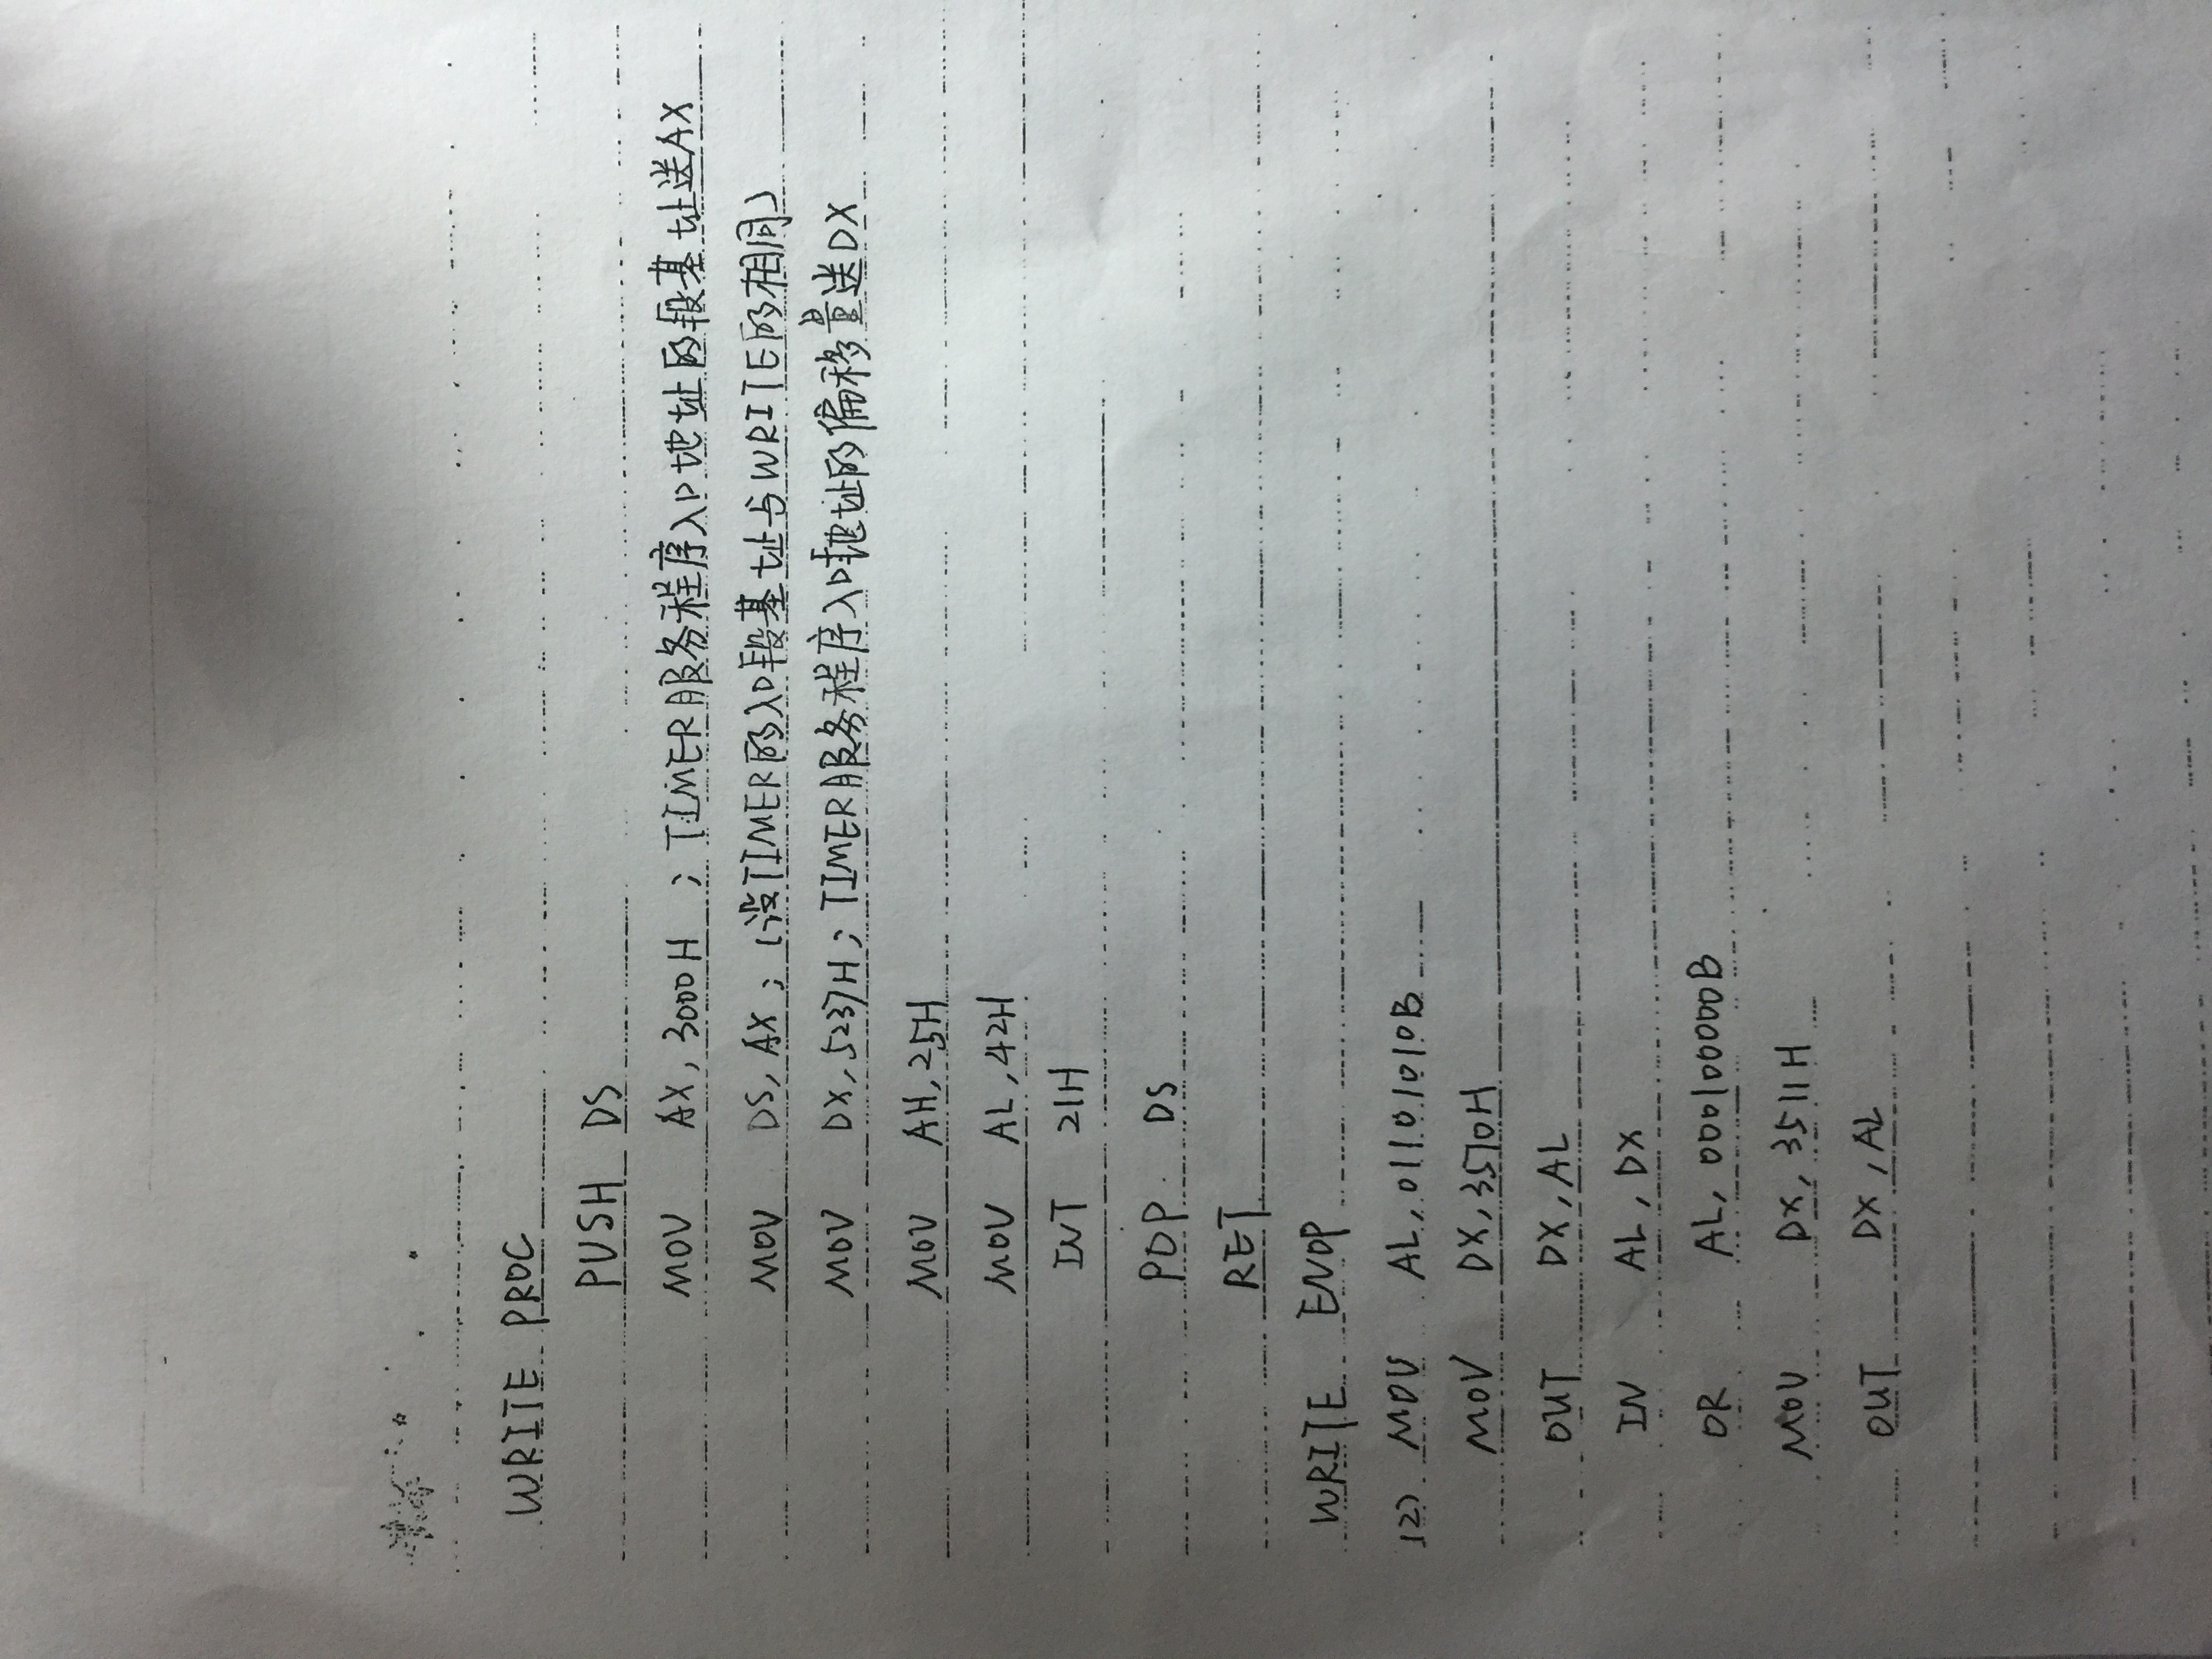 WRITE PROC
PUSH DS
MOV AX, 3000H ; TIMER服务程序入口地址的段基址送AX
MOV DS, AX ; (设TIMER的入口段基址与WRITE的相同)
MOV DX, 5237H ; TIMER服务程序入口地址的偏移量送DX
MOV AH, 25H
MOV AL, 42H
INT 21H
POP DS
RET
WRITE ENDP
(2) MOV AL, 01101010B
MOV DX, 3570H
OUT DX, AL
IN AL, DX
OR AL, 000100000B
MOV DX, 3511H
OUT DX, AL